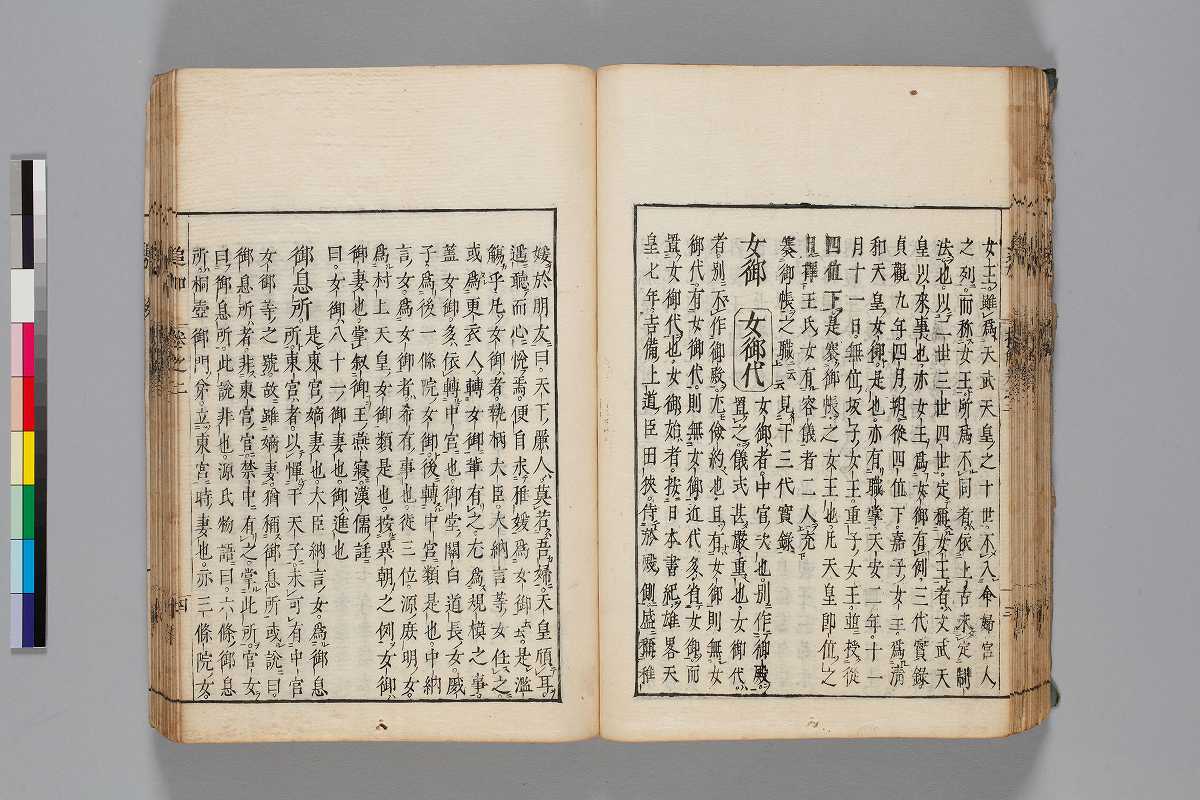 女王雖爲天武天皇之十世不入命婦宮人
之列而称女王所爲不同者依上古來定制
法也以二世三世四世定稱女王者文武天
皇以來事也亦女王爲女御有例三代實錄
貞觀九年四月朔從四位下嘉子女王爲淸
和天皇女御是也亦有職掌天安二年十一
月十一日無位坂子女王重子女王並授從
四位下是褰御帳之女王也凡天皇即位之
日擇王氏女有容儀者二人充
褰御帳之職云云見于三代實錄
女御 女御代 女御者中宮次也別作御殿
置之儀式甚嚴重也女御代
者別不作御殿尤儉約也且有女御則無女
御代有女御代則無女御近代多省女御而
置女御代也女御始者按日本書紀雄畧天
皇七年吉備上道臣田狹侍於殿側盛稱稚
媛於朋友曰天下麗人莫若吾婦天皇頎耳
遥聽而心悅焉便自求稚媛爲女御云是濫
觴乎凡女御者執柄大臣大納言等女任之
或爲更衣人轉女御輩有之尤爲規模之事
蓋女御多依轉中宮也御堂關白道長女威
子爲後一條院女御後轉中宮類是也中納
言女爲女御者希有事也從三位源庶明女
爲村上天皇女御類是也按異朝之例女御
御妻也掌叙御王燕寢漢儒註
曰女御八十一御妻也御進也
御息所 是東宮嫡妻也大臣納言女爲御息
所東宮者以憚于天子未可有中宮
女御等之號故雖嫡妻猶稱御息所或說曰
御息所者非東宮官禁中有之掌此所官女
曰御息所此說非也源氏物語曰六條御息
所桐壺御門弟立東宮時妻也亦三條院女
追加 卷之二 四